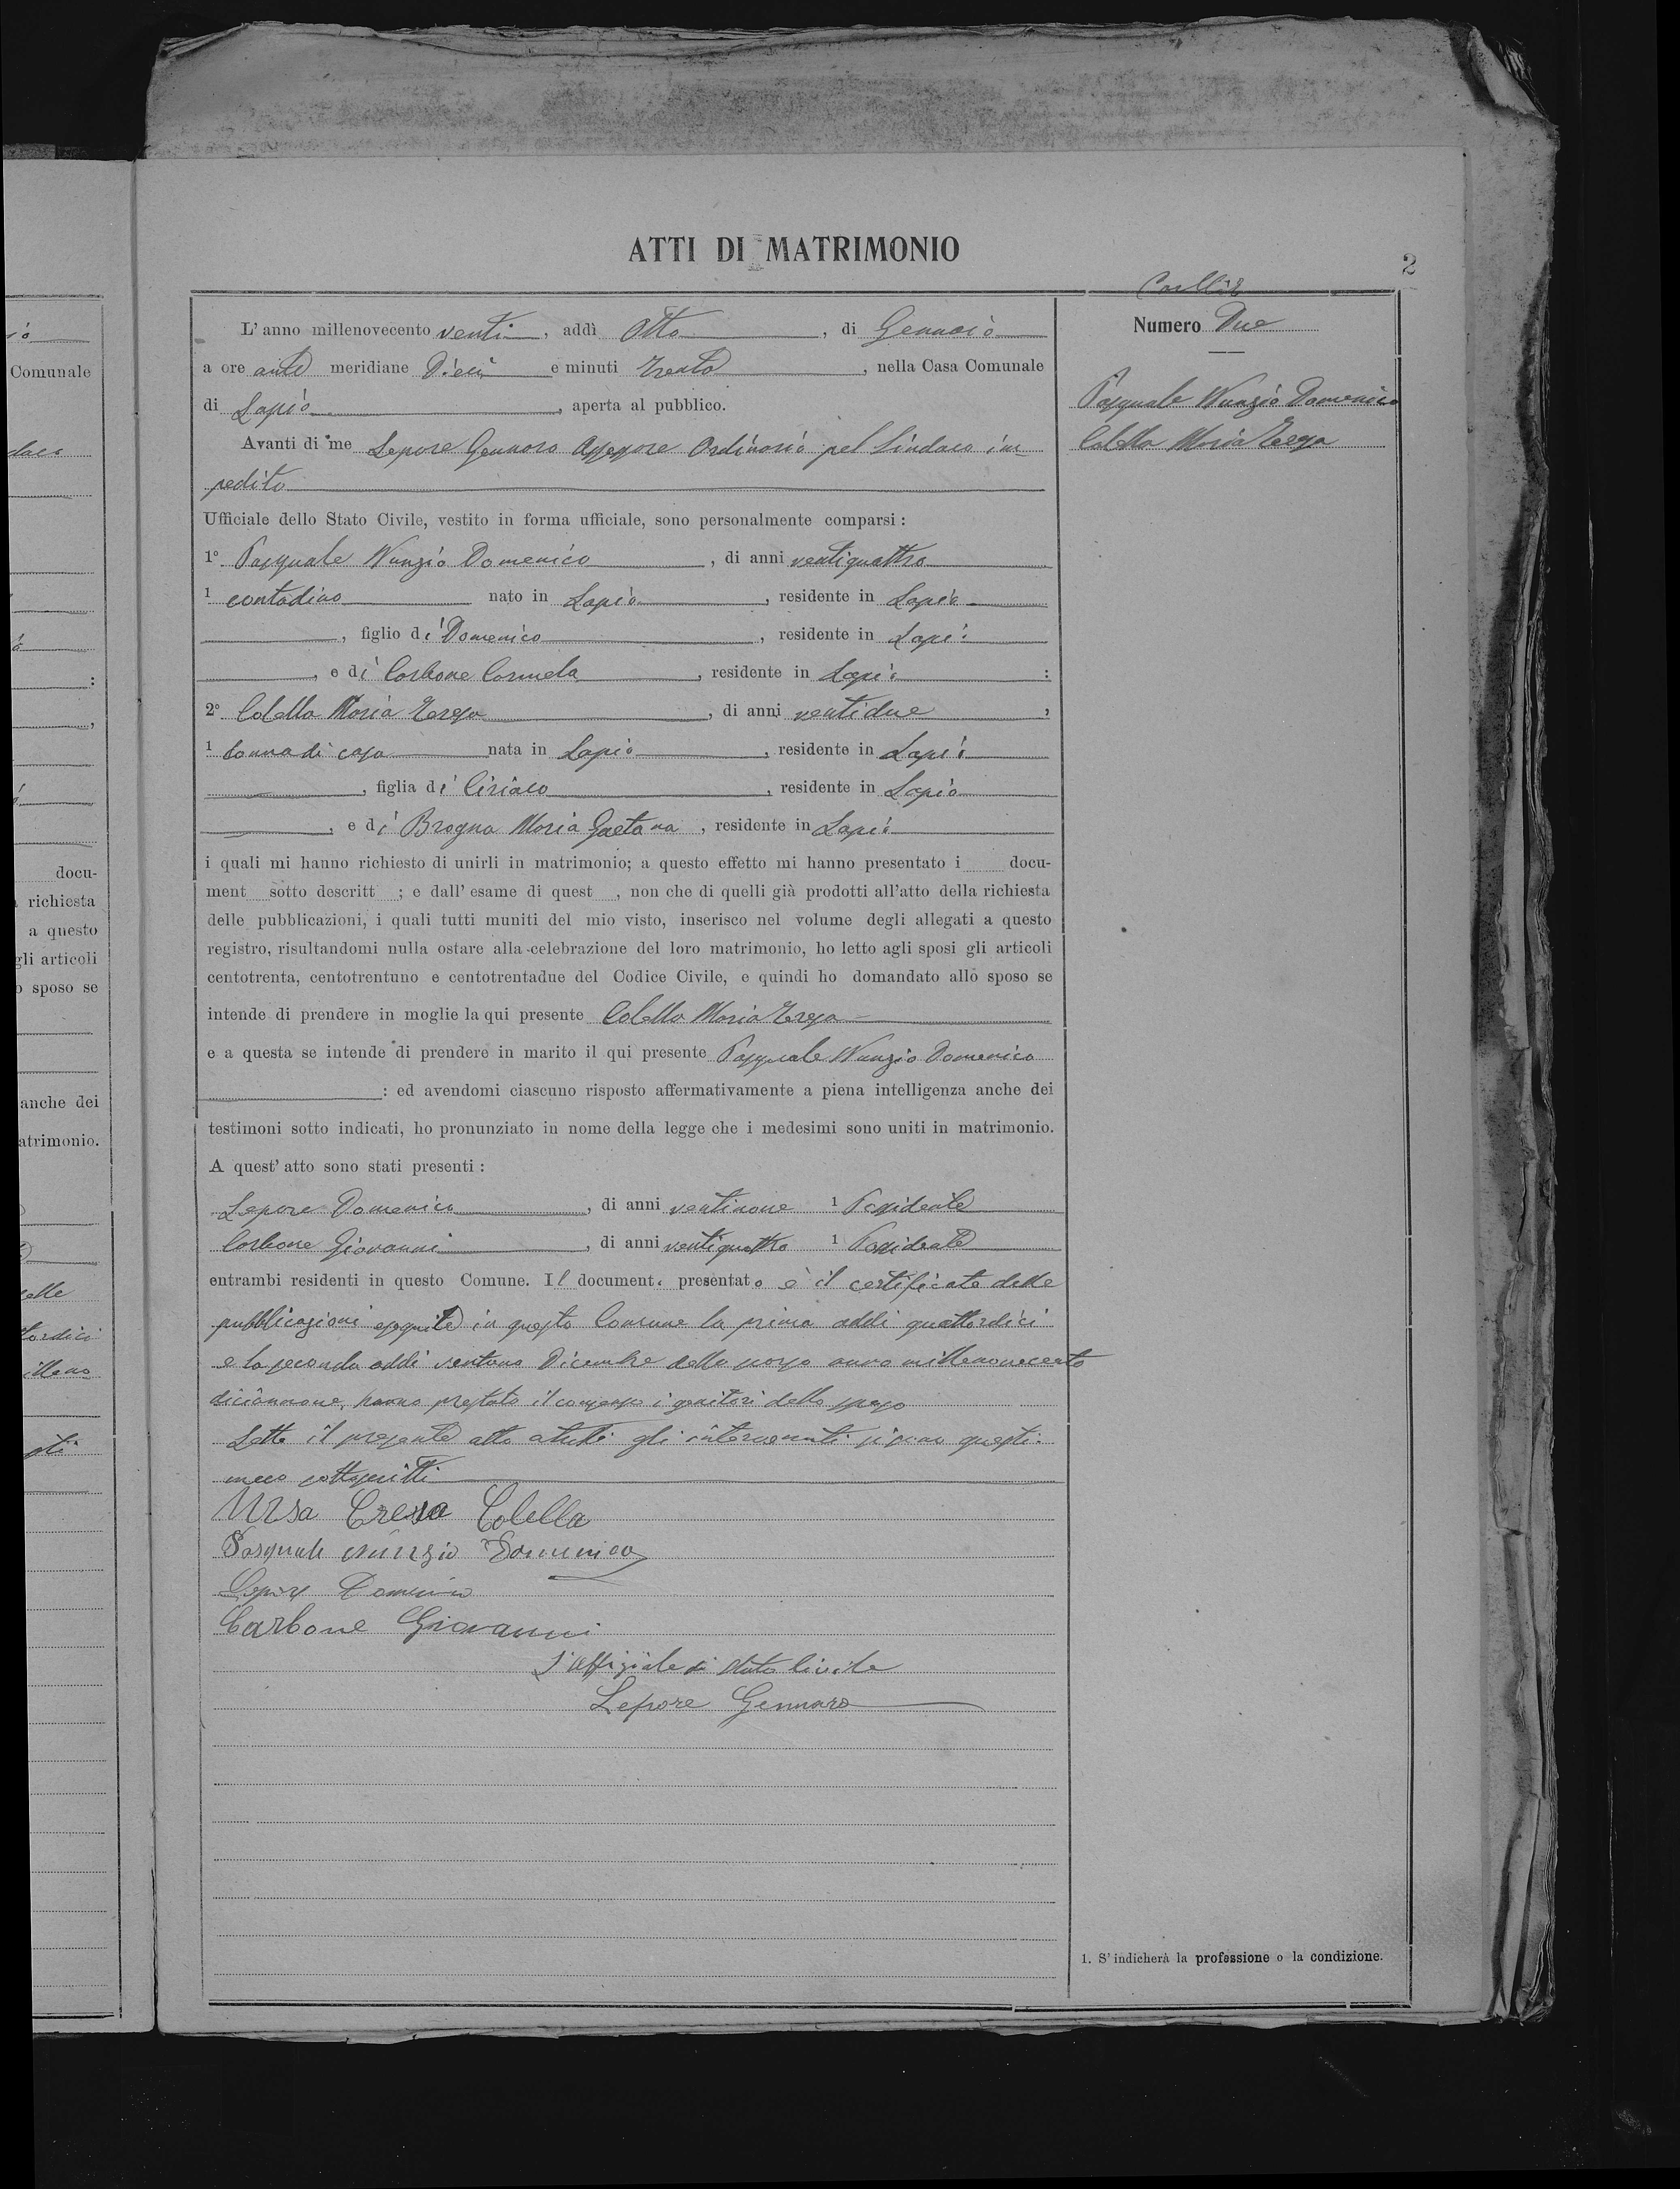 ATTI DI MATRIMONIO
2
L'anno millenovecento venti, addì Otto, di Gennaio
a ore ante meridiane Dieci e minuti trenta, nella Casa Comunale
di Lapio, aperta al pubblico.
Avanti di me Lepore Gennaro Assessore Ordinario pel Sindaco im-
pedito
Ufficiale dello Stato Civile, vestito in forma ufficiale, sono personalmente comparsi:
1° Pasquale Nunzio Domenico, di anni ventiquattro
1 contadino nato in Lapio, residente in Lapio
, figlio di Domenico, residente in Lapio
, e di Carbone Carmela, residente in Lapio:
2° Colella Maria Teresa, di anni ventidue,
1 donna di casa nata in Lapio, residente in Lapio
, figlia di Ciriaco, residente in Lapio
, e di Brogna Maria Gaetana, residente in Lapio
i quali mi hanno richiesto di unirli in matrimonio; a questo effetto mi hanno presentato i docu-
ment sotto descritt ; e dall'esame di quest , non che di quelli già prodotti all'atto della richiesta
delle pubblicazioni, i quali tutti muniti del mio visto, inserisco nel volume degli allegati a questo
registro, risultandomi nulla ostare alla celebrazione del loro matrimonio, ho letto agli sposi gli articoli
centotrenta, centotrentuno e centotrentadue del Codice Civile, e quindi ho domandato allo sposo se
intende di prendere in moglie la qui presente Colella Maria Teresa
e a questa se intende di prendere in marito il qui presente Pasquale Nunzio Domenico
: ed avendomi ciascuno risposto affermativamente a piena intelligenza anche dei
testimoni sotto indicati, ho pronunziato in nome della legge che i medesimi sono uniti in matrimonio.
A quest'atto sono stati presenti:
Lepore Domenico, di anni ventinove 1 Possidente
Carbone Giovanni, di anni ventiquattro 1 Possidente
entrambi residenti in questo Comune. Il document. presentato è il certificato delle
pubblicazioni eseguite in questo Comune la prima addì quattordici
e la seconda addì ventuno Dicembre dello scorso anno millenovecento
diciannove, hanno prestato il consenso i genitori dello sposo
Letto il presente atto a tutti gli intervenuti si sono questi
meco sottoscritti
Mrsa Teresa Colella
Pasquale Nunzio Domenico
Lepore Domenico
Carbone Giovanni
L'Uffiziale di Stato Civile
Lepore Gennaro
Numero Due
Pasquale Nunzio Domenico
Colella Maria Teresa
1. S'indicherà la professione o la condizione.
Comunale
docu-
richiesta
a questo
gli articoli
sposo se
anche dei
atrimonio.